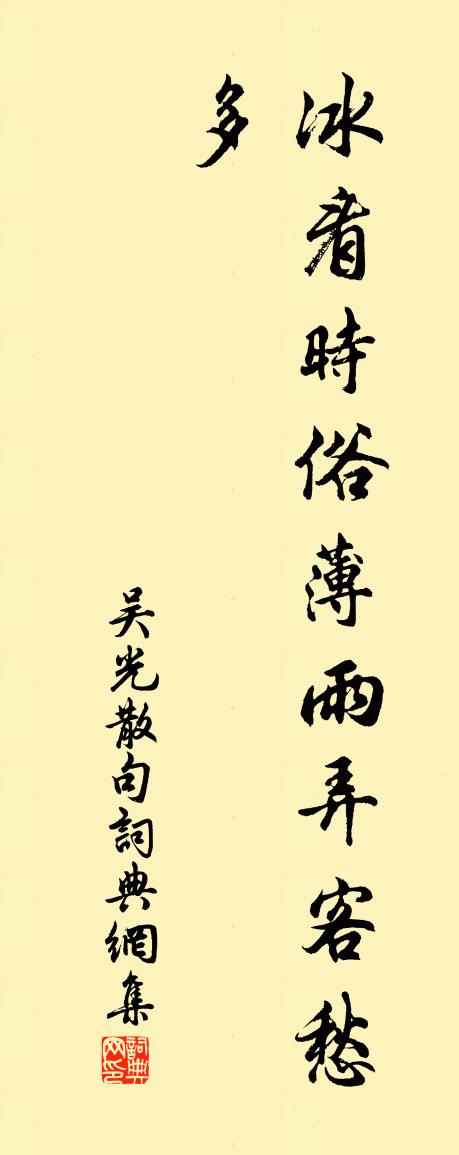 冰看時俗薄雨弄客愁
多
吴光散句詞典網集
詞典网印